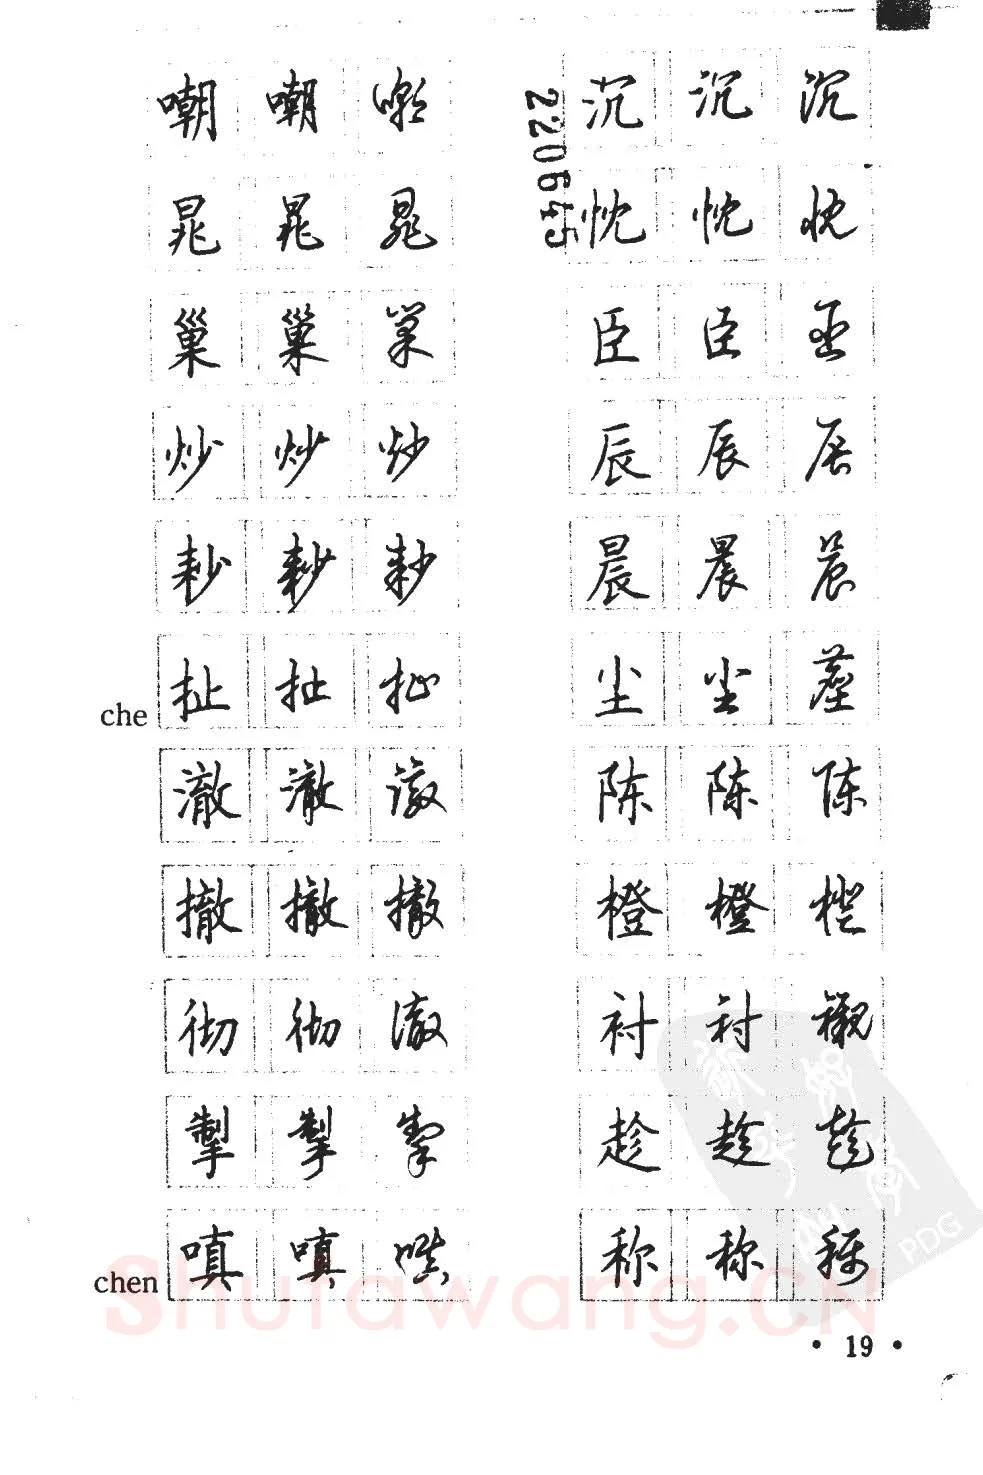 嘲 嘲 嘲
晁 晁 晁
巢 巢 巢
炒 炒 炒
耖 耖 耖
che 扯 扯 扯
澈 澈 澈
撤 撤 撤
彻 彻 澈
掣 掣 掣
chen 嗔 嗔 嗔
沉 沉 沉
忱 忱 忱
臣 臣 臣
辰 辰 辰
晨 晨 晨
尘 尘 塵
陈 陈 陈
橙 橙 橙
衬 衬 襯
趁 趁 趁
称 称 称
2220645
PDG
Shufawang.CN
• 19 •